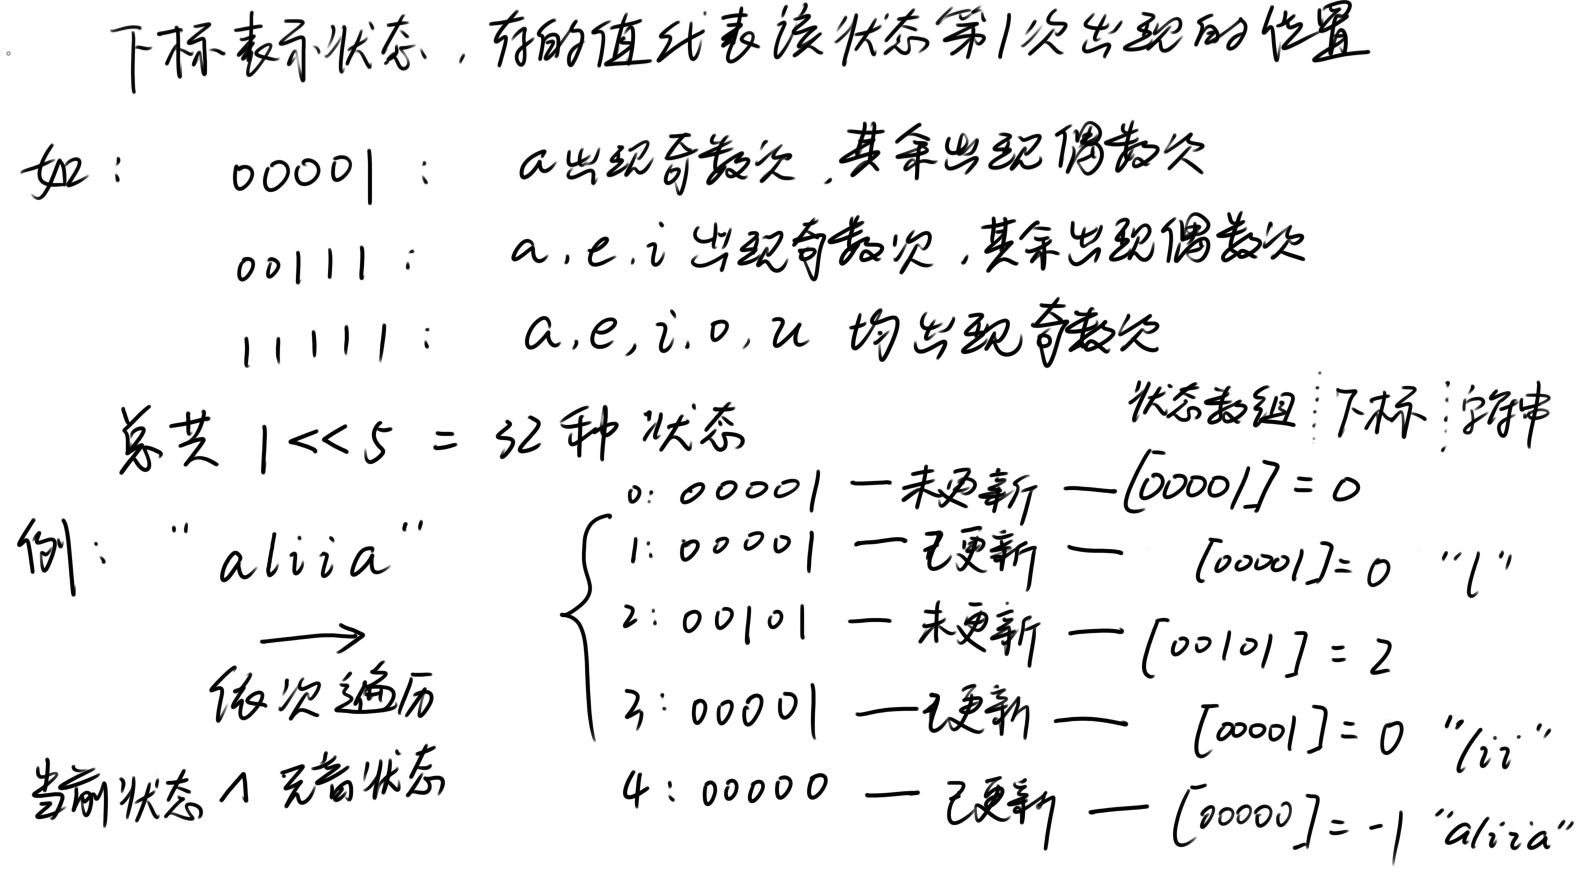 下标表示状态，存的值代表该状态第1次出现的位置
如： 00001： a出现奇数次，其余出现偶数次
00111： a,e,i出现奇数次，其余出现偶数次
11111： a,e,i,o,u 均出现奇数次
总共 1<<5 = 32种状态
状态数组 下标 字符串
0: 00001 — 未更新 — [00001] = 0
例： "aliia"
1: 00001 — 已更新 — [00001] = 0 "l"
2: 00101 — 未更新 — [00101] = 2
依次遍历
3: 00001 — 已更新 — [00001] = 0 "lii"
当前状态 ^ 元音状态
4: 00000 — 已更新 — [00000] = -1 "aliia"